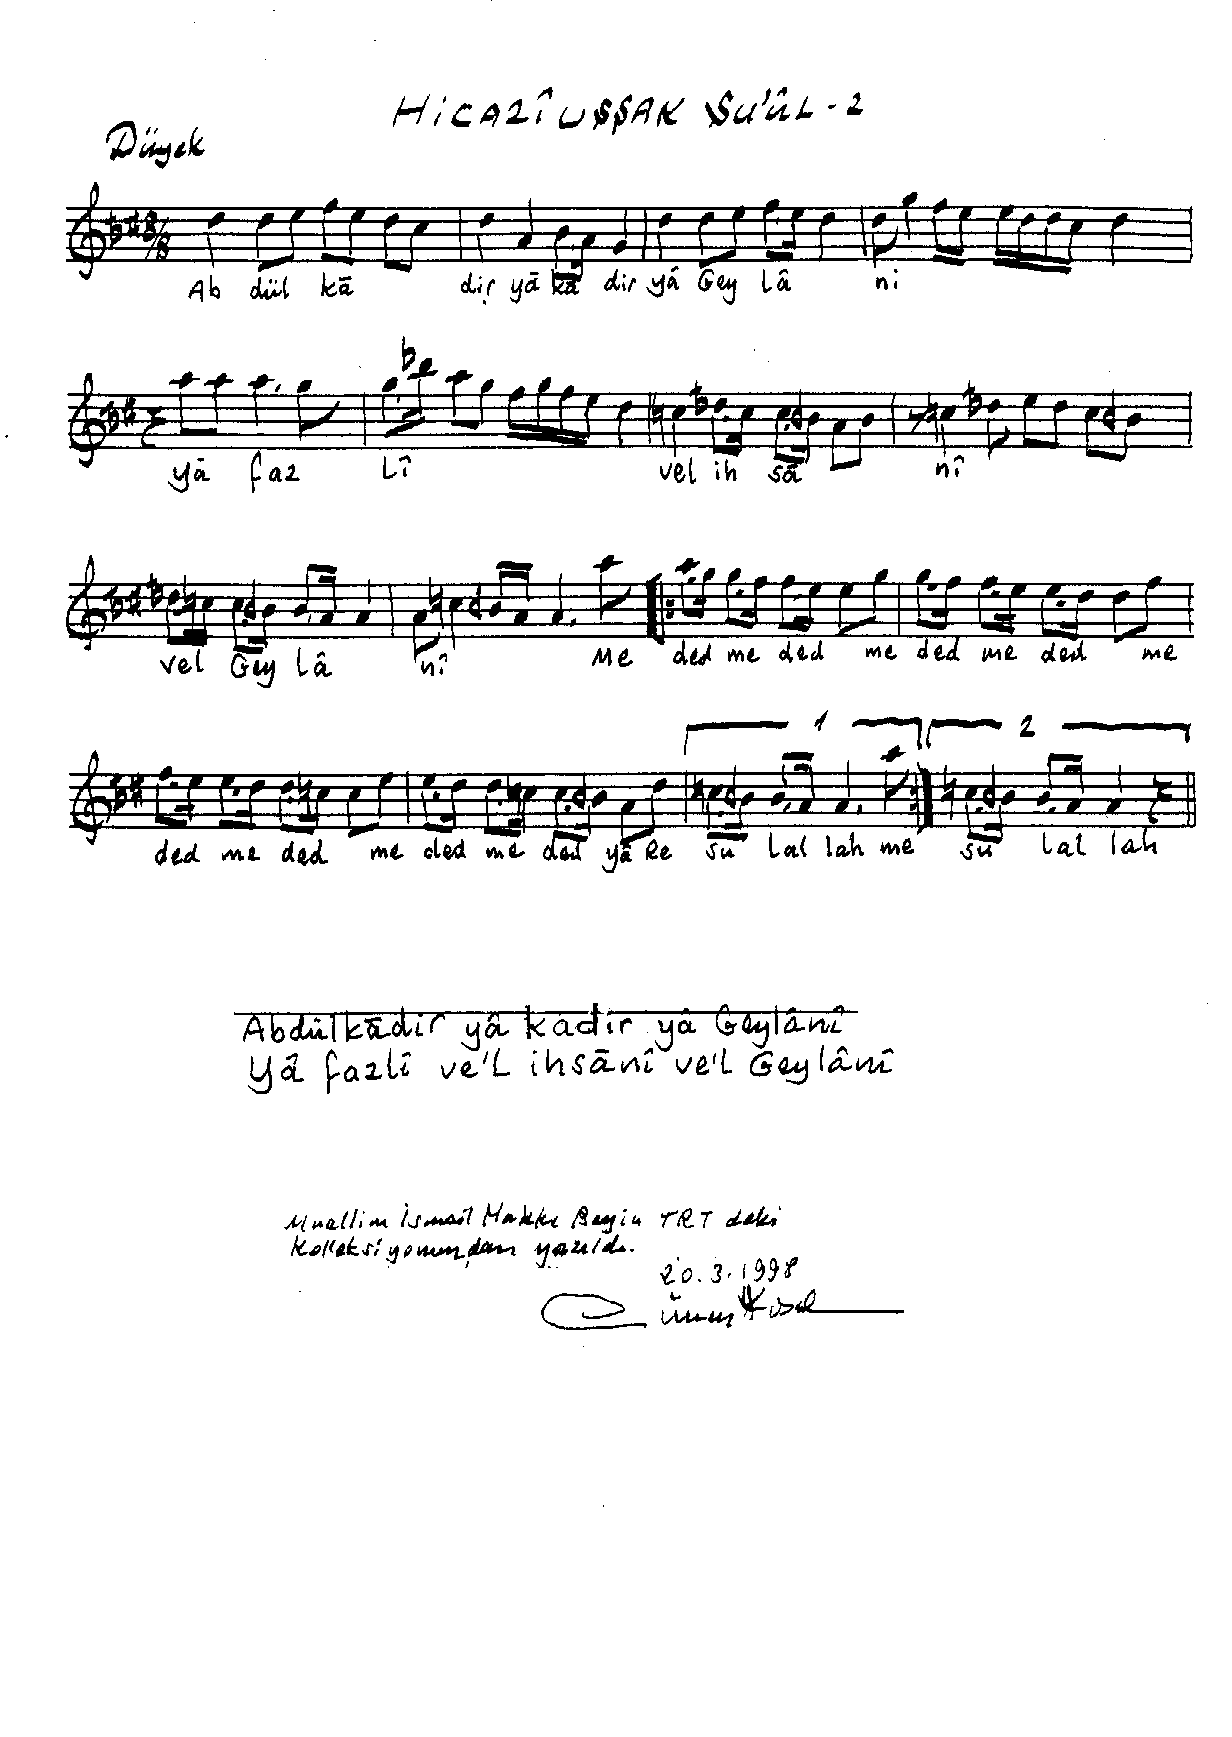 HiCAZÎ UŞŞAK ŞU'ÛL - 2
Düyek
8/8
Ab dül kā dir yā kā dir yâ Gey lâ ni
yā faz lî vel ih sā nî
vel Gey lâ nî Me ded me ded me ded me ded me
ded me ded me ded me ded yā Re su lal lah me su lal lah
1 2
Abdülkādir yâ kadir yâ Geylânî
Yâ fazlî ve'l ihsānî ve'l Geylânî
Muallim İsmail Hakkı Beyin TRT deki
Kolleksiyonundan yazıldı.
20.3.1998